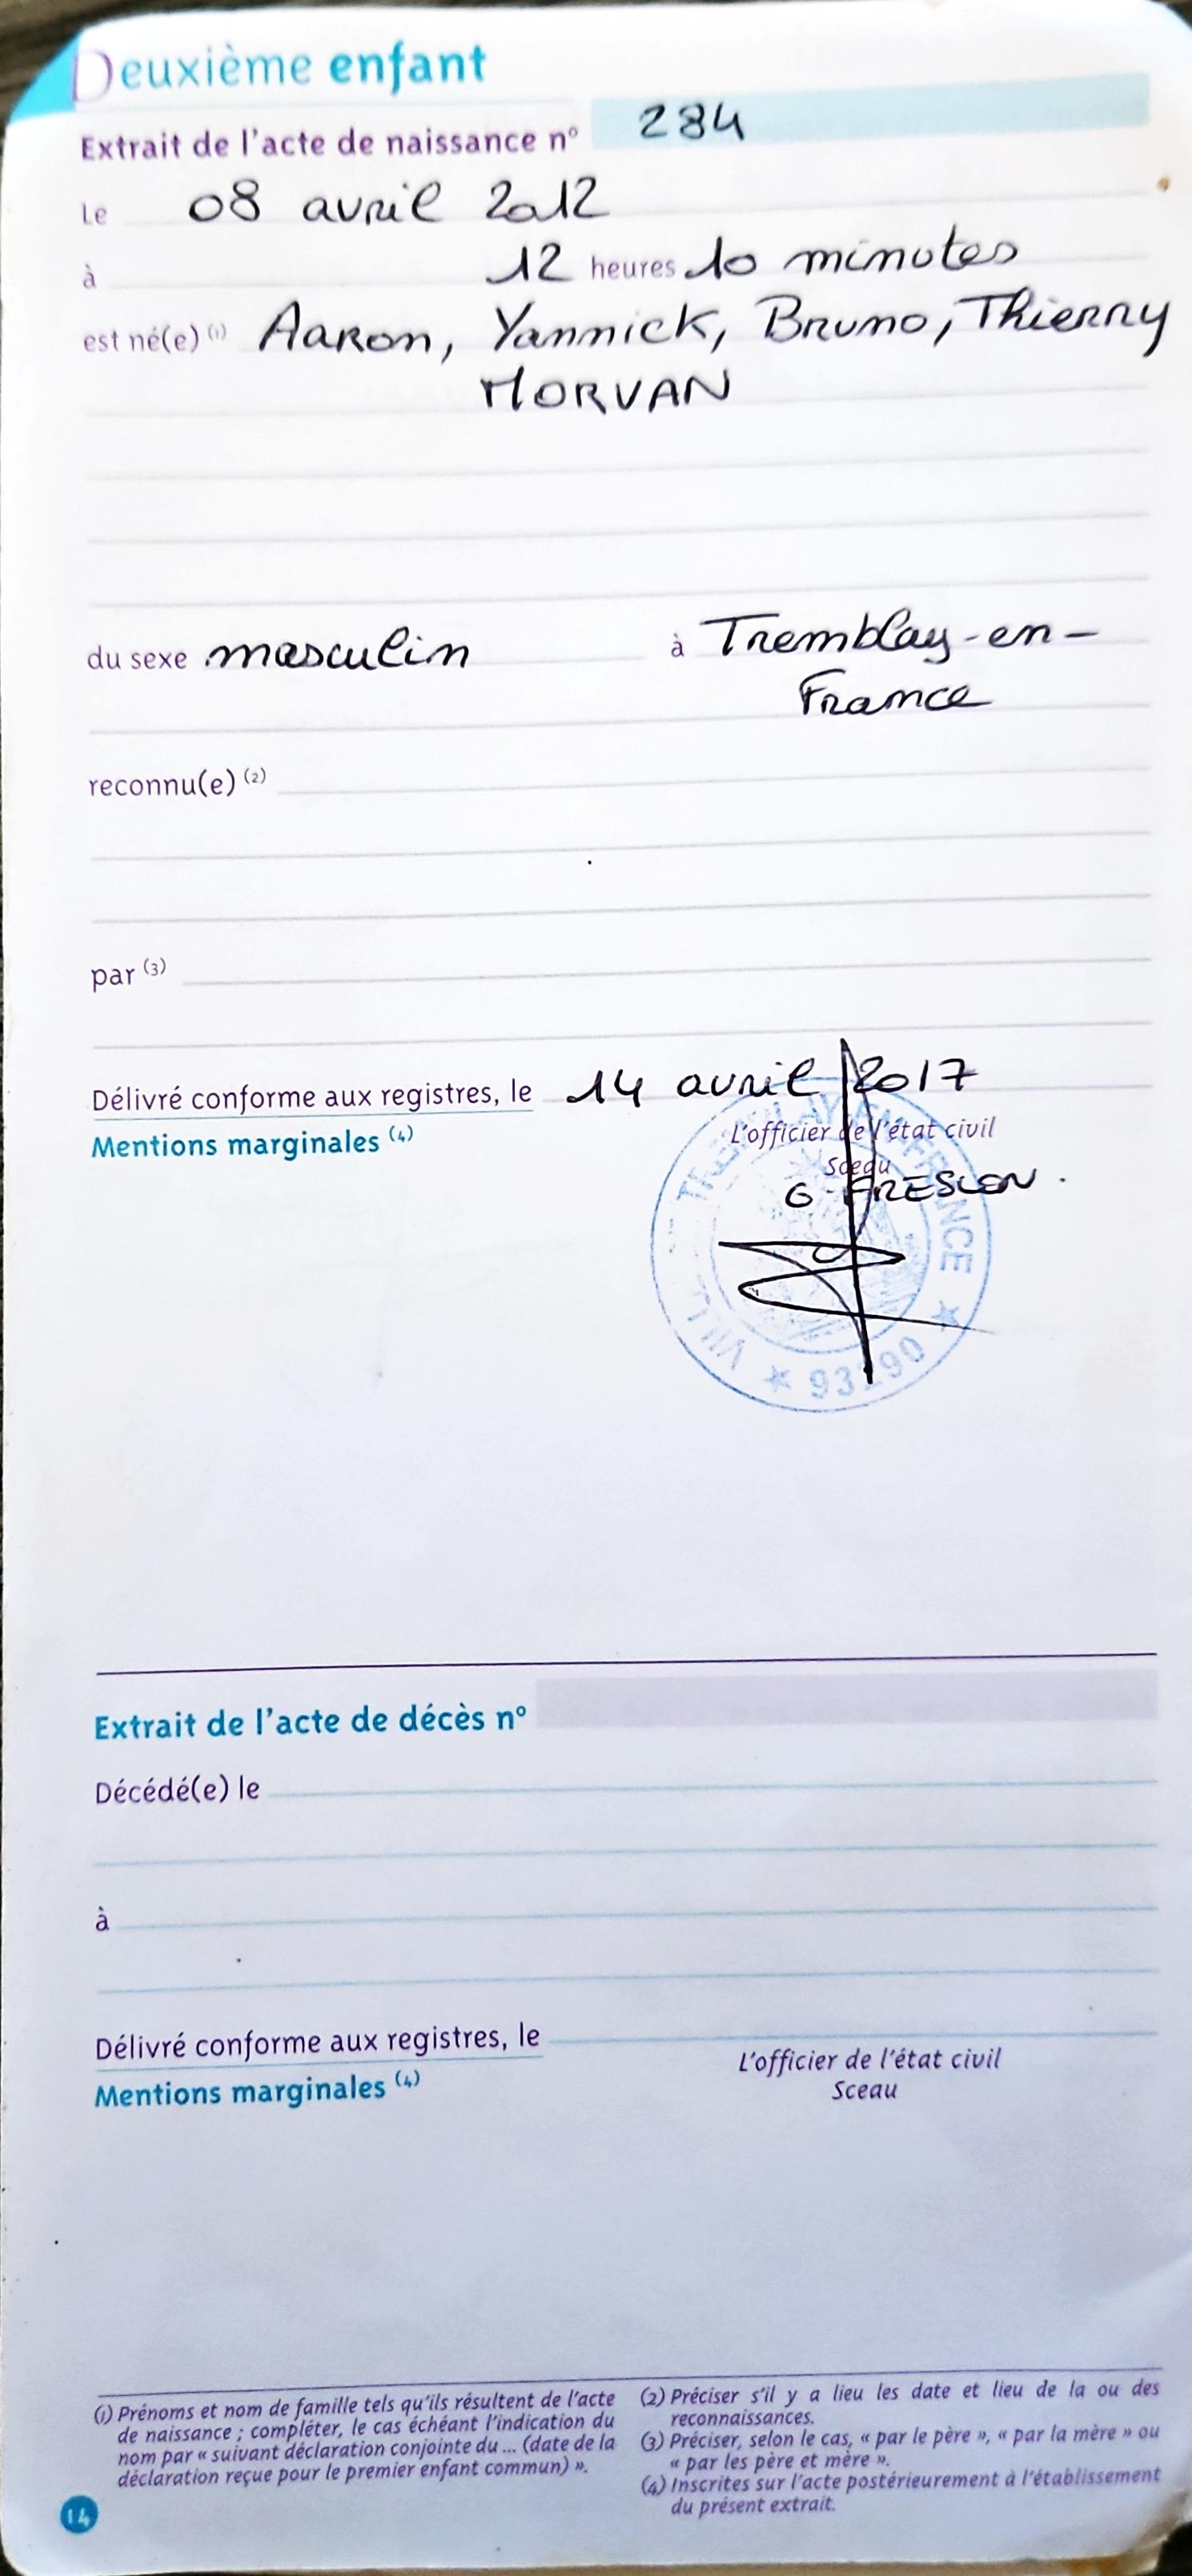 Deuxième enfant
Extrait de l'acte de naissance n° 284
Le 08 avril 2012
à 12 heures 10 minutes
est né(e) (1) Aaron, Yannick, Bruno, Thierry
MORVAN
du sexe masculin à Tremblay-en-
France
reconnu(e) (2)
par (3)
Délivré conforme aux registres, le 14 avril 2017
Mentions marginales (4)
L'officier de l'état civil
Sceau
G. FRESLON.
VILLE TREMBLAY EN FRANCE ★ 93290 ★
Extrait de l'acte de décès n°
Décédé(e) le
à
Délivré conforme aux registres, le
Mentions marginales (4)
L'officier de l'état civil
Sceau
(1) Prénoms et nom de famille tels qu'ils résultent de l'acte
de naissance ; compléter, le cas échéant l'indication du
nom par « suivant déclaration conjointe du ... (date de la
déclaration reçue pour le premier enfant commun) ».
(2) Préciser s'il y a lieu les date et lieu de la ou des
reconnaissances.
(3) Préciser, selon le cas, « par le père », « par la mère » ou
« par les père et mère ».
(4) Inscrites sur l'acte postérieurement à l'établissement
du présent extrait.
14